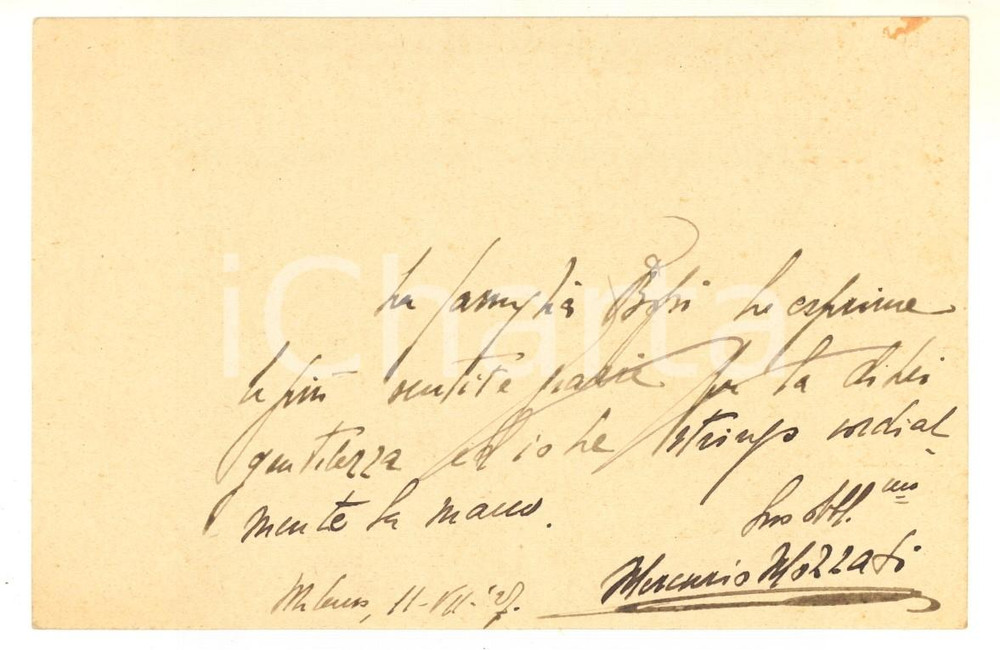 La famiglia Bosi Le esprime
le più sentite grazie per la di Lei
gentilezza ed io Le stringo cordial
mente la mano.
Suo obb.mo
Mercurio Mozzati
Milano, 11-VII-'27.
iCharta